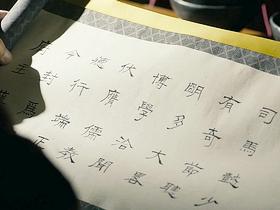 司馬懿少
有奇節聰
明多大略
博學洽聞
伏膺儒教
行端正
今封爲
王